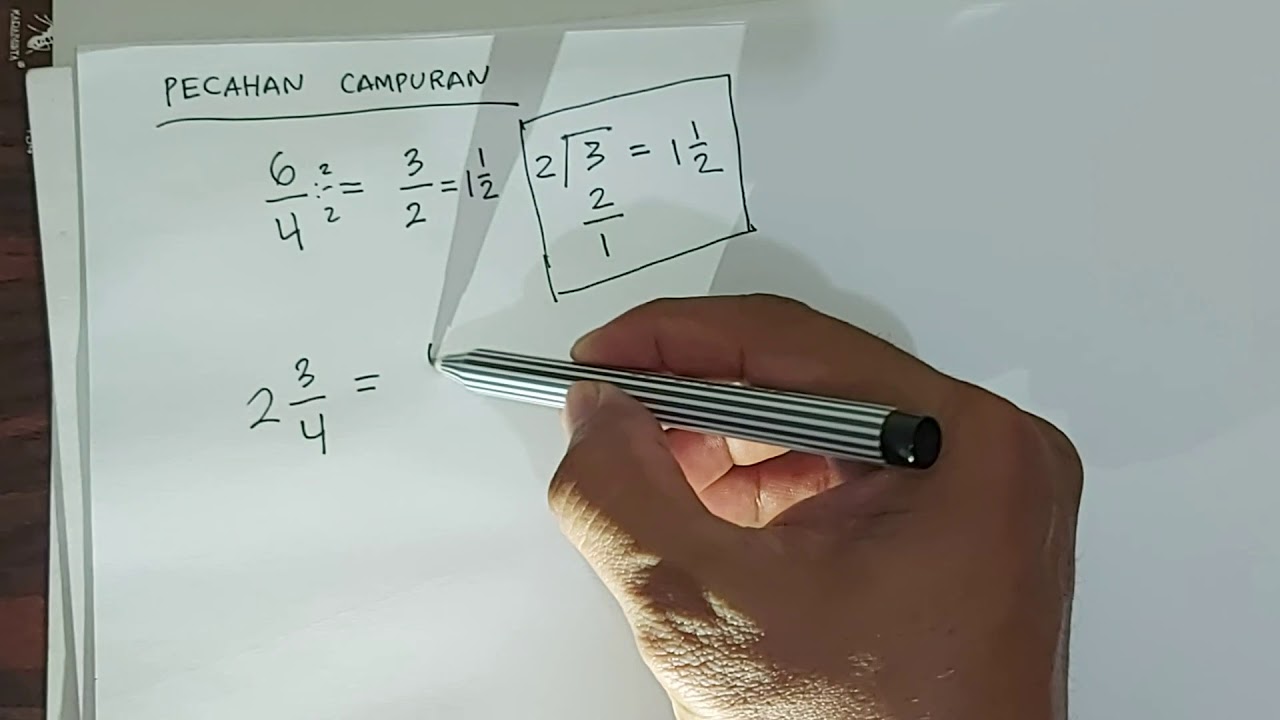 PECAHAN CAMPURAN
6/4 ÷ 2/2 = 3/2 = 1 1/2
2 ⟌ 3 = 1 1/2
2
1
2 3/4 =